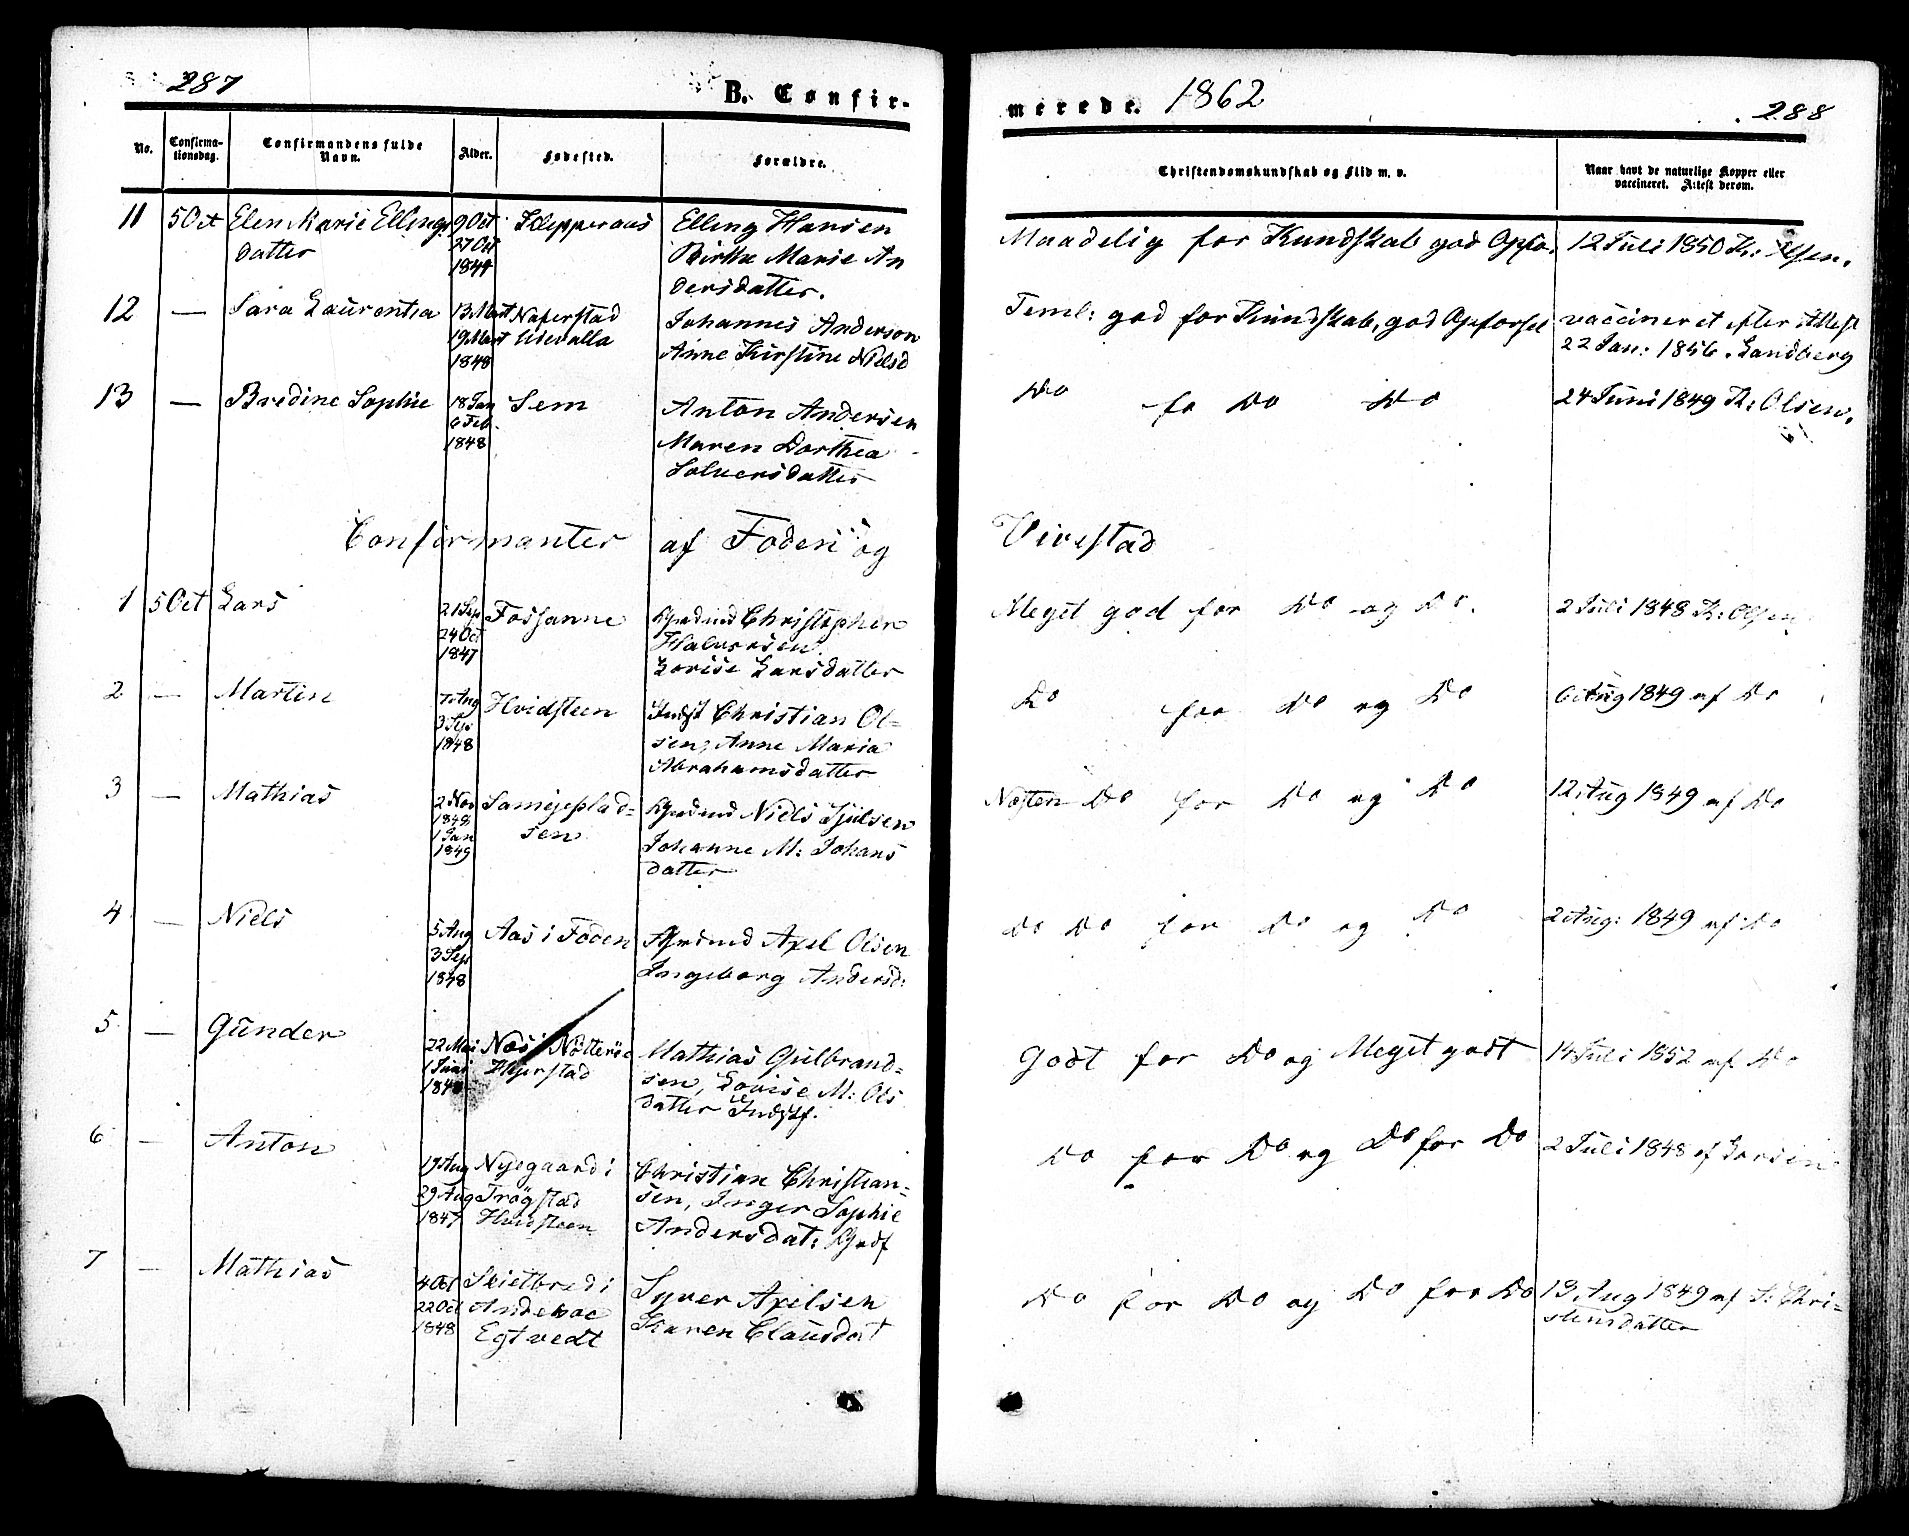 287
B. Confir-
No.
Confirma-
tionsdag.
Confirmandens fulde
Navn.
Alder.
Fødested.
Forældre.
11 5 Oct Elen Marie Ellings
datter
9 Oct
27 Oct
1844
Klepperaas
Elling Hansen
Birthe Marie An
dersdatter.
12 — Sara Laurentia
13 Mart
19 Mart
1848
Naferstad
Udevalla
Johannes Anderson
Anne Kirstine Nielsd
13 — Bredine Sophie
18 Jan
6 Feb.
1848
Sem
Anton Andersen
Maren Dorthea
Solversdatter
Confirmanter af Foden og
1 5 Oct Lars
21 Sep
24 Oct
1847
Fossanne
Gjrdmd Christopher
Halvorsen
Lovise Larsdatter
2 — Martin
7 Aug
3 Sep
1848
Hvidsteen
Indst Christian Ol-
sen, Anne Maria
Abrahamsdatter
3 — Mathias
2 Nov
1848
1 Jan
1849
Samejeplad-
sen
Gjrdmd Niels Julsen
Johanne M: Johans
datter
4 — Niels
5 Aug
3 Sep
1848
Aas i Foden
Gjrdmd Axel Olsen
Ingeborg Andersd:
5 — Gunder
22 Mai
1 Juni
1848
Næs i Nötterøe
Hjerstad
Mathias Gulbrand-
sen, Lovise M: Ols
datter Indstf.
6 — Anton
19 Aug
29 Aug
1847
Nyegaard i
Trögstad
Hvidsteen
Christian Christian-
sen, Inger Sophie
Andersdat: Gjrdf
7 — Mathias
4 Oct
22 Oct
1848
Skietbred i
Andeboe
Egtvedt
Syver Axelsen
Karen Clausdat
merede. 1862
288
Christendomskundskab og Flid m. v.
Naar havt de naturlige Kopper eller
vaccineret. Attest derom.
Maadelig for Kundskab god Opfø. 12 Juli 1850 K: Olsen.
Teml: god for Kundskab, god Opførsel vaccineret efter Attest
22 Jan: 1856. Landberg
Do fo Do Do 24 Juni 1849 K: Olsen.
Virestad
Meget god for Do og Do. 2 Juli 1848 K: Olsen
Do for Do og Do 6 Aug 1849 af Do
Næsten Do for Do og Do 12 Aug 1849 af Do
Do Do for Do og Do 2 Aug: 1849 af Do
Godt for Do og Meget godt 14 Juli 1852 af Do
Do for Do og Do for Do 2 Juli 1848 af Larsen
Do for Do og Do for Do 13 Aug 1849 af S: Chri-
stensdatter